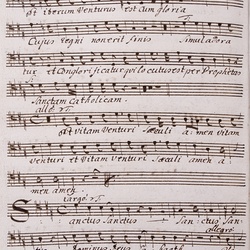 et iterum Venturus est Cum gloria
Cujus regni non erit finis Simul adora
tur et Conglorificatur qui locutus est per Prophetas
Sanctam Catholicam.
allo
et Vitam Venturi Sæculi a: men vitam
Venturi et Vitam Venturi Sæculi amen a:
men amen
largo
Sanctus Sanctus Sanctus San:
allegro
Dominus Deus